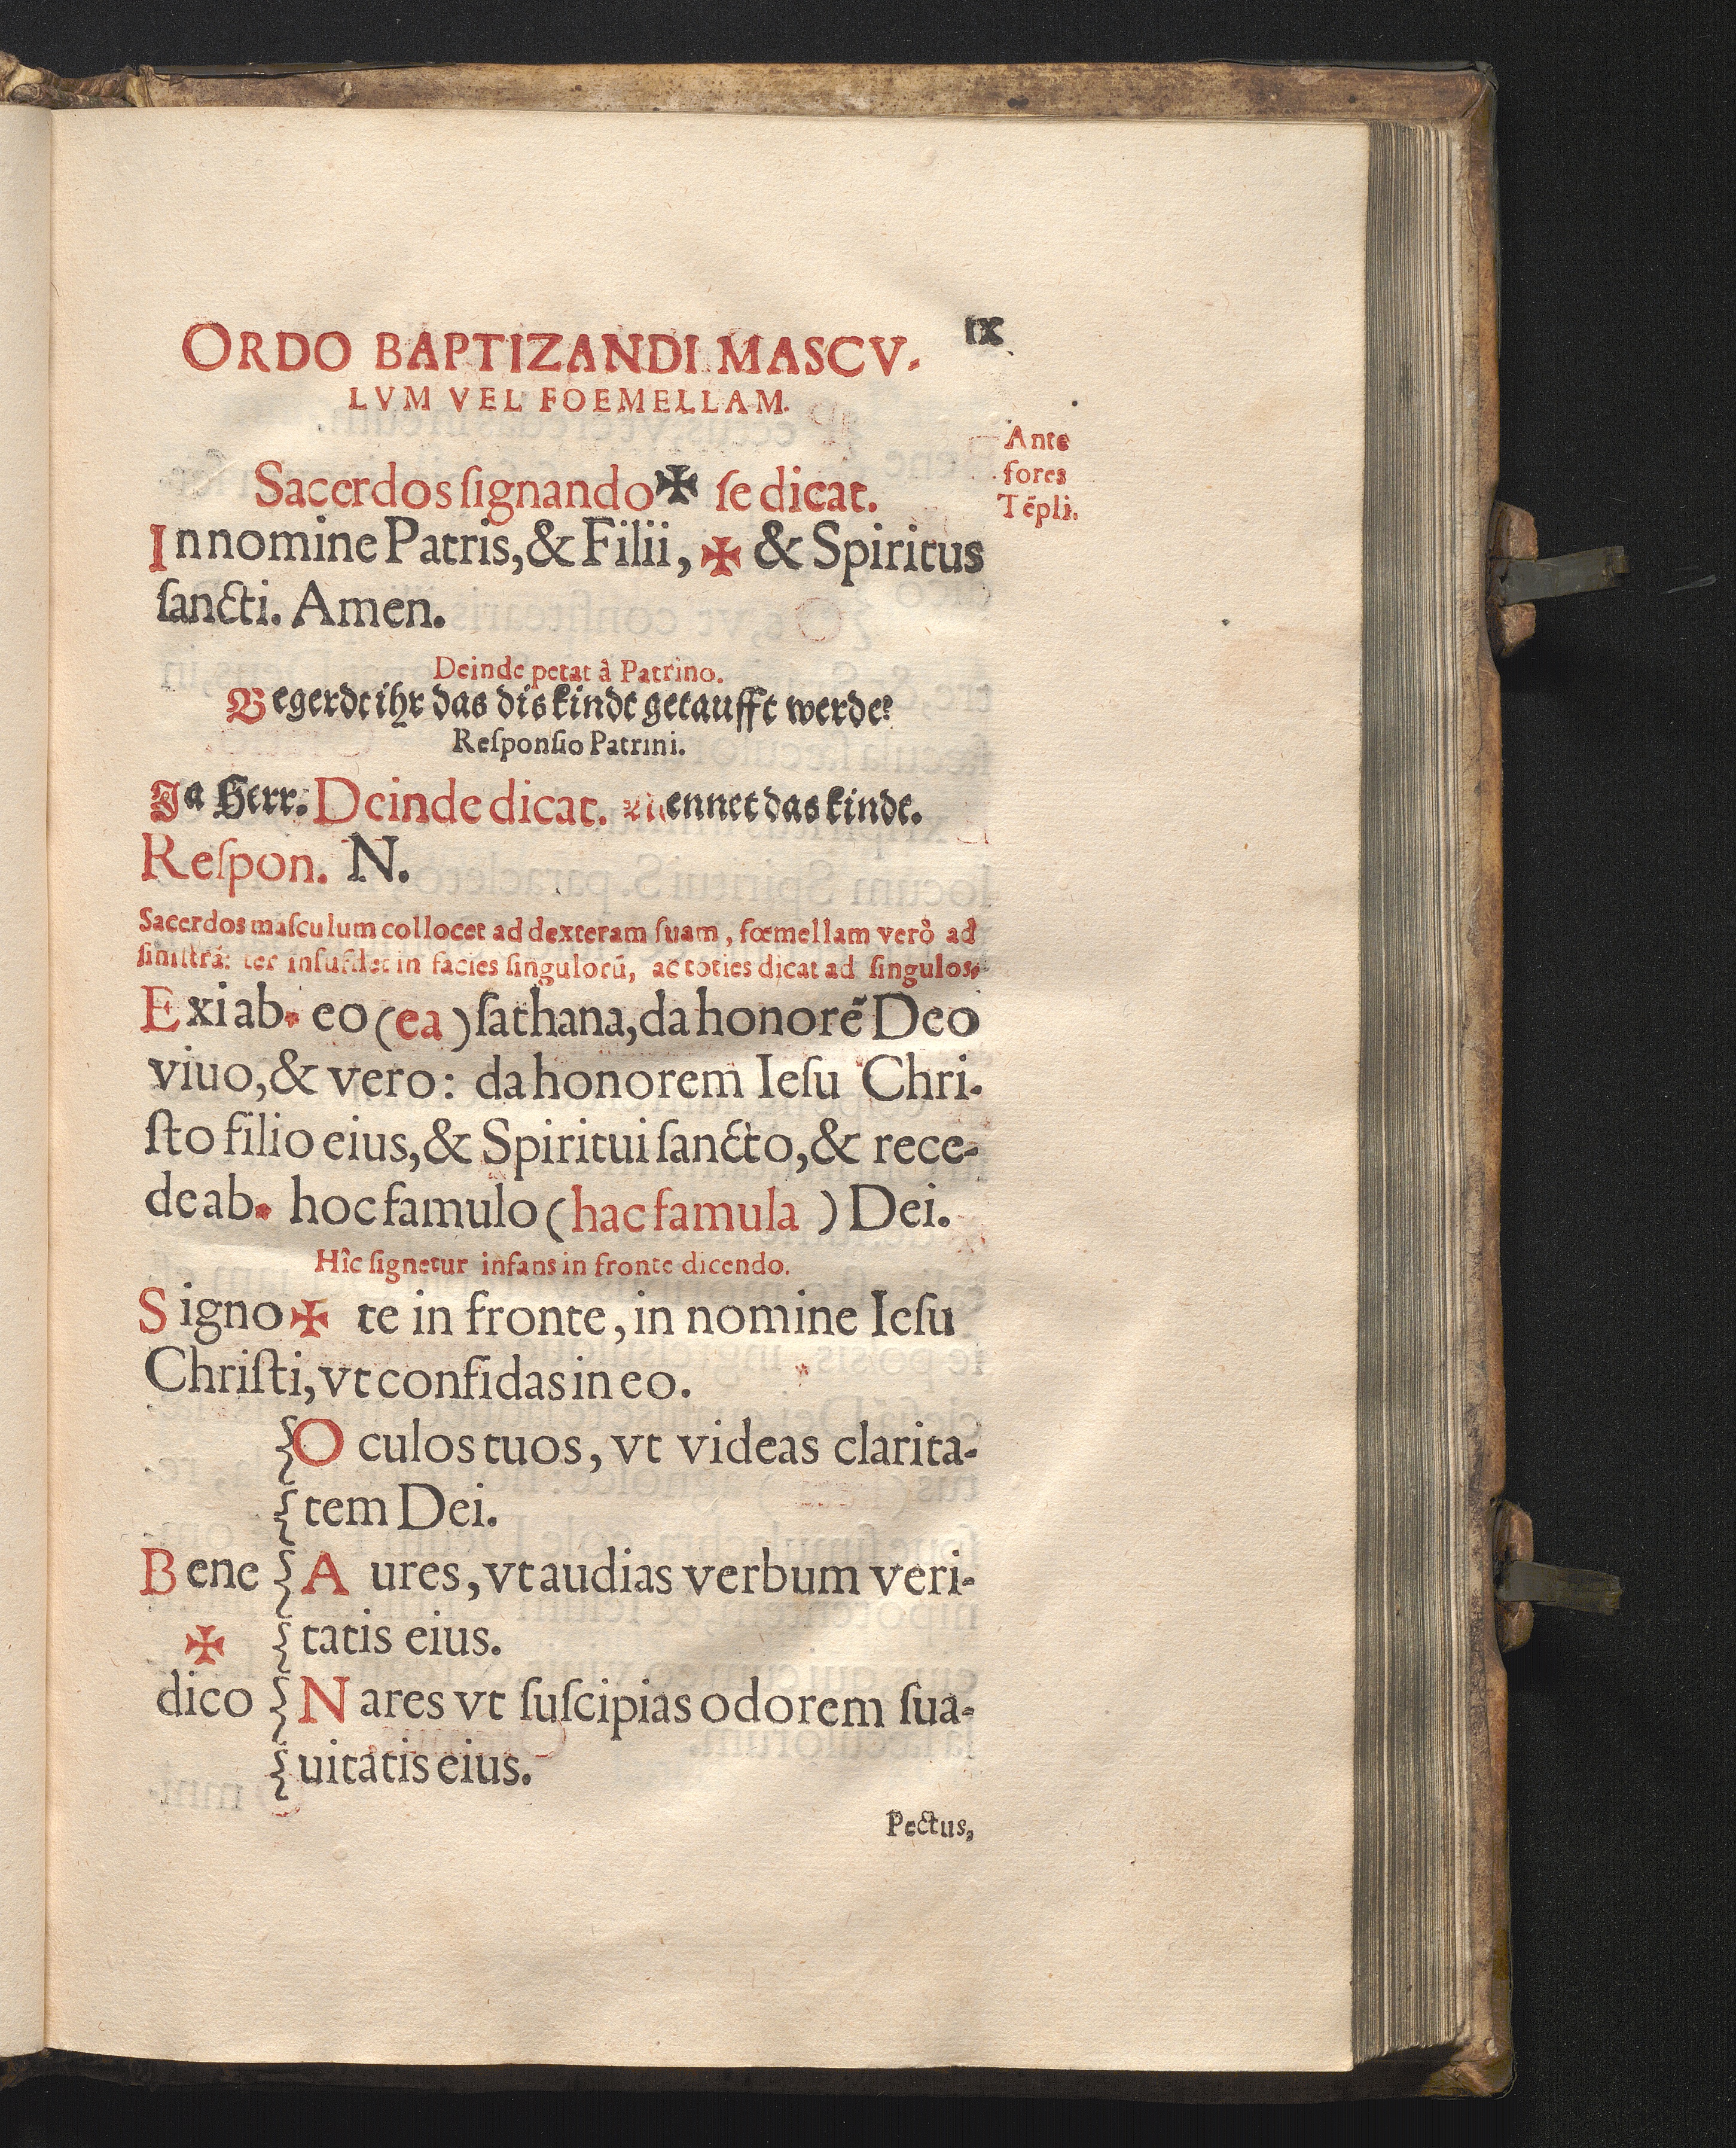 IX
ORDO BAPTIZANDI MASCV-
LVM VEL FOEMELLAM.
Ante
fores
Tẽpli.
Sacerdos ſignando ✠ ſe dicat.
In nomine Patris, & Filii, ✠ & Spiritus
ſancti. Amen.
Deinde petat à Patrino.
Begerdt ihr das dis kindt getaufft werde?
Reſponſio Patrini.
Ja Herr. Deinde dicat. Nennet das kindt.
Reſpon. N.
Sacerdos maſculum collocet ad dexteram ſuam, fœmellam verò ad
ſiniſtrã: ter inſufflet in facies ſingulorũ, ac toties dicat ad ſingulos.
Exi ab * eo (ea) ſathana, da honorẽ Deo
viuo, & vero: da honorem Ieſu Chri-
ſto filio eius, & Spiritui ſancto, & rece-
de ab * hoc famulo (hac famula) Dei.
Hîc ſignetur infans in fronte dicendo.
Signo ✠ te in fronte, in nomine Ieſu
Chriſti, vt confidas in eo.
Oculos tuos, vt videas clarita-
tem Dei.
Bene Aures, vt audias verbum veri-
✠ tatis eius.
dico Nares vt ſuſcipias odorem ſua-
uitatis eius.
Pectus,